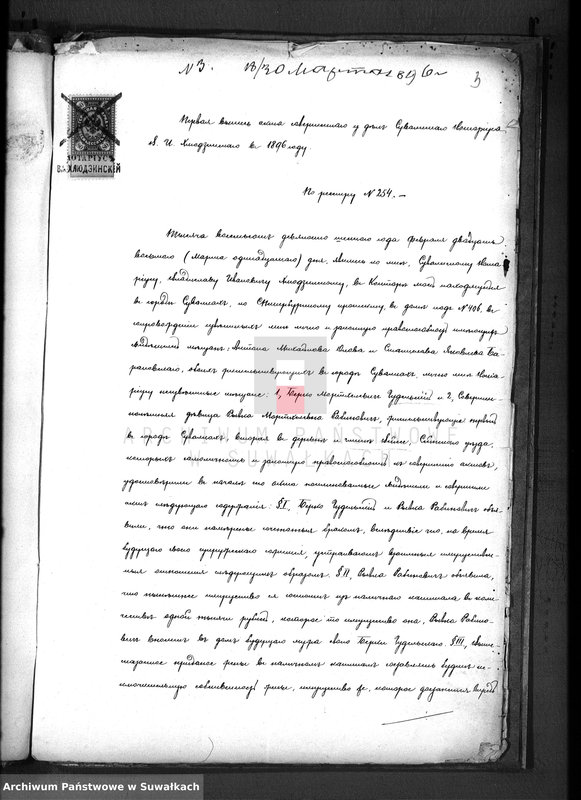 № 3. 18/30 Марта 1896 г. 3
НОТАРІУСЪ
В. ХЛЮДЗИНСКІЙ
Первая выпись акта совершеннаго у дѣлъ Сувалкскаго Нотаріуса
В. И. Хлюдзинскаго въ 1896 году.
По реестру № 254. —
Тысяча восемьсотъ девяносто шестого года Февраля двадцать
восьмого (Марта одиннадцатаго) дня, явились ко мнѣ, Сувалкскому Нота-
ріусу, Владиславу Ивановичу Хлюдзинскому, въ Контору мою находящуюся
въ городѣ Сувалкахъ, по Петербургскому проспекту, въ домѣ подъ № 406, въ
сопровожденіи извѣстныхъ мнѣ лично и законную правоспособность имѣющихъ
свидѣтелей мѣщанъ, Антона Михайлова и Станислава Яковлева Ба-
рановскаго, обоихъ жительствующихъ въ городѣ Сувалкахъ, лично мнѣ Нота-
ріусу неизвѣстные мѣщане: 1, Берко Мортхелевичъ Гудельскій и 2, Совершен-
нолѣтняя дѣвица Рывка Мортхелевна Рабиновичъ, жительствующіе первый
въ городѣ Сувалкахъ, вторая въ деревнѣ и гминѣ Сейненскаго уѣзда,
которыхъ самоличность и законную правоспособность къ совершенію актовъ,
удостовѣрили въ началѣ сего акта поименованные свидѣтели и совершили
актъ слѣдующаго содержанія: § I, Берко Гудельскій и Рывка Рабиновичъ объя-
вили, что они намѣрены сочетаться бракомъ, вслѣдствіе чего, на время
будущаго своего супружескаго сожитія, устраиваютъ взаимныя имуществен-
ныя отношенія слѣдующимъ образомъ. § II, Рывка Рабиновичъ объявила,
что нынѣшнее имущество ея состоитъ изъ наличнаго капитала въ коли-
чествѣ одной тысячи рублей, которое то имущество она, Рывка Рабино-
вичъ вноситъ въ домъ будущаго мужа своего Берки Гудельскаго. § III, Выше-
сказанное приданое жены въ наличномъ капиталѣ составлять будетъ ис-
ключительную собственность жены, имущество же, которое достанется впредь
ARCHIWUM PAŃSTWOWE
W SUWAŁKACH
Archiwum Państwowe w Suwałkach